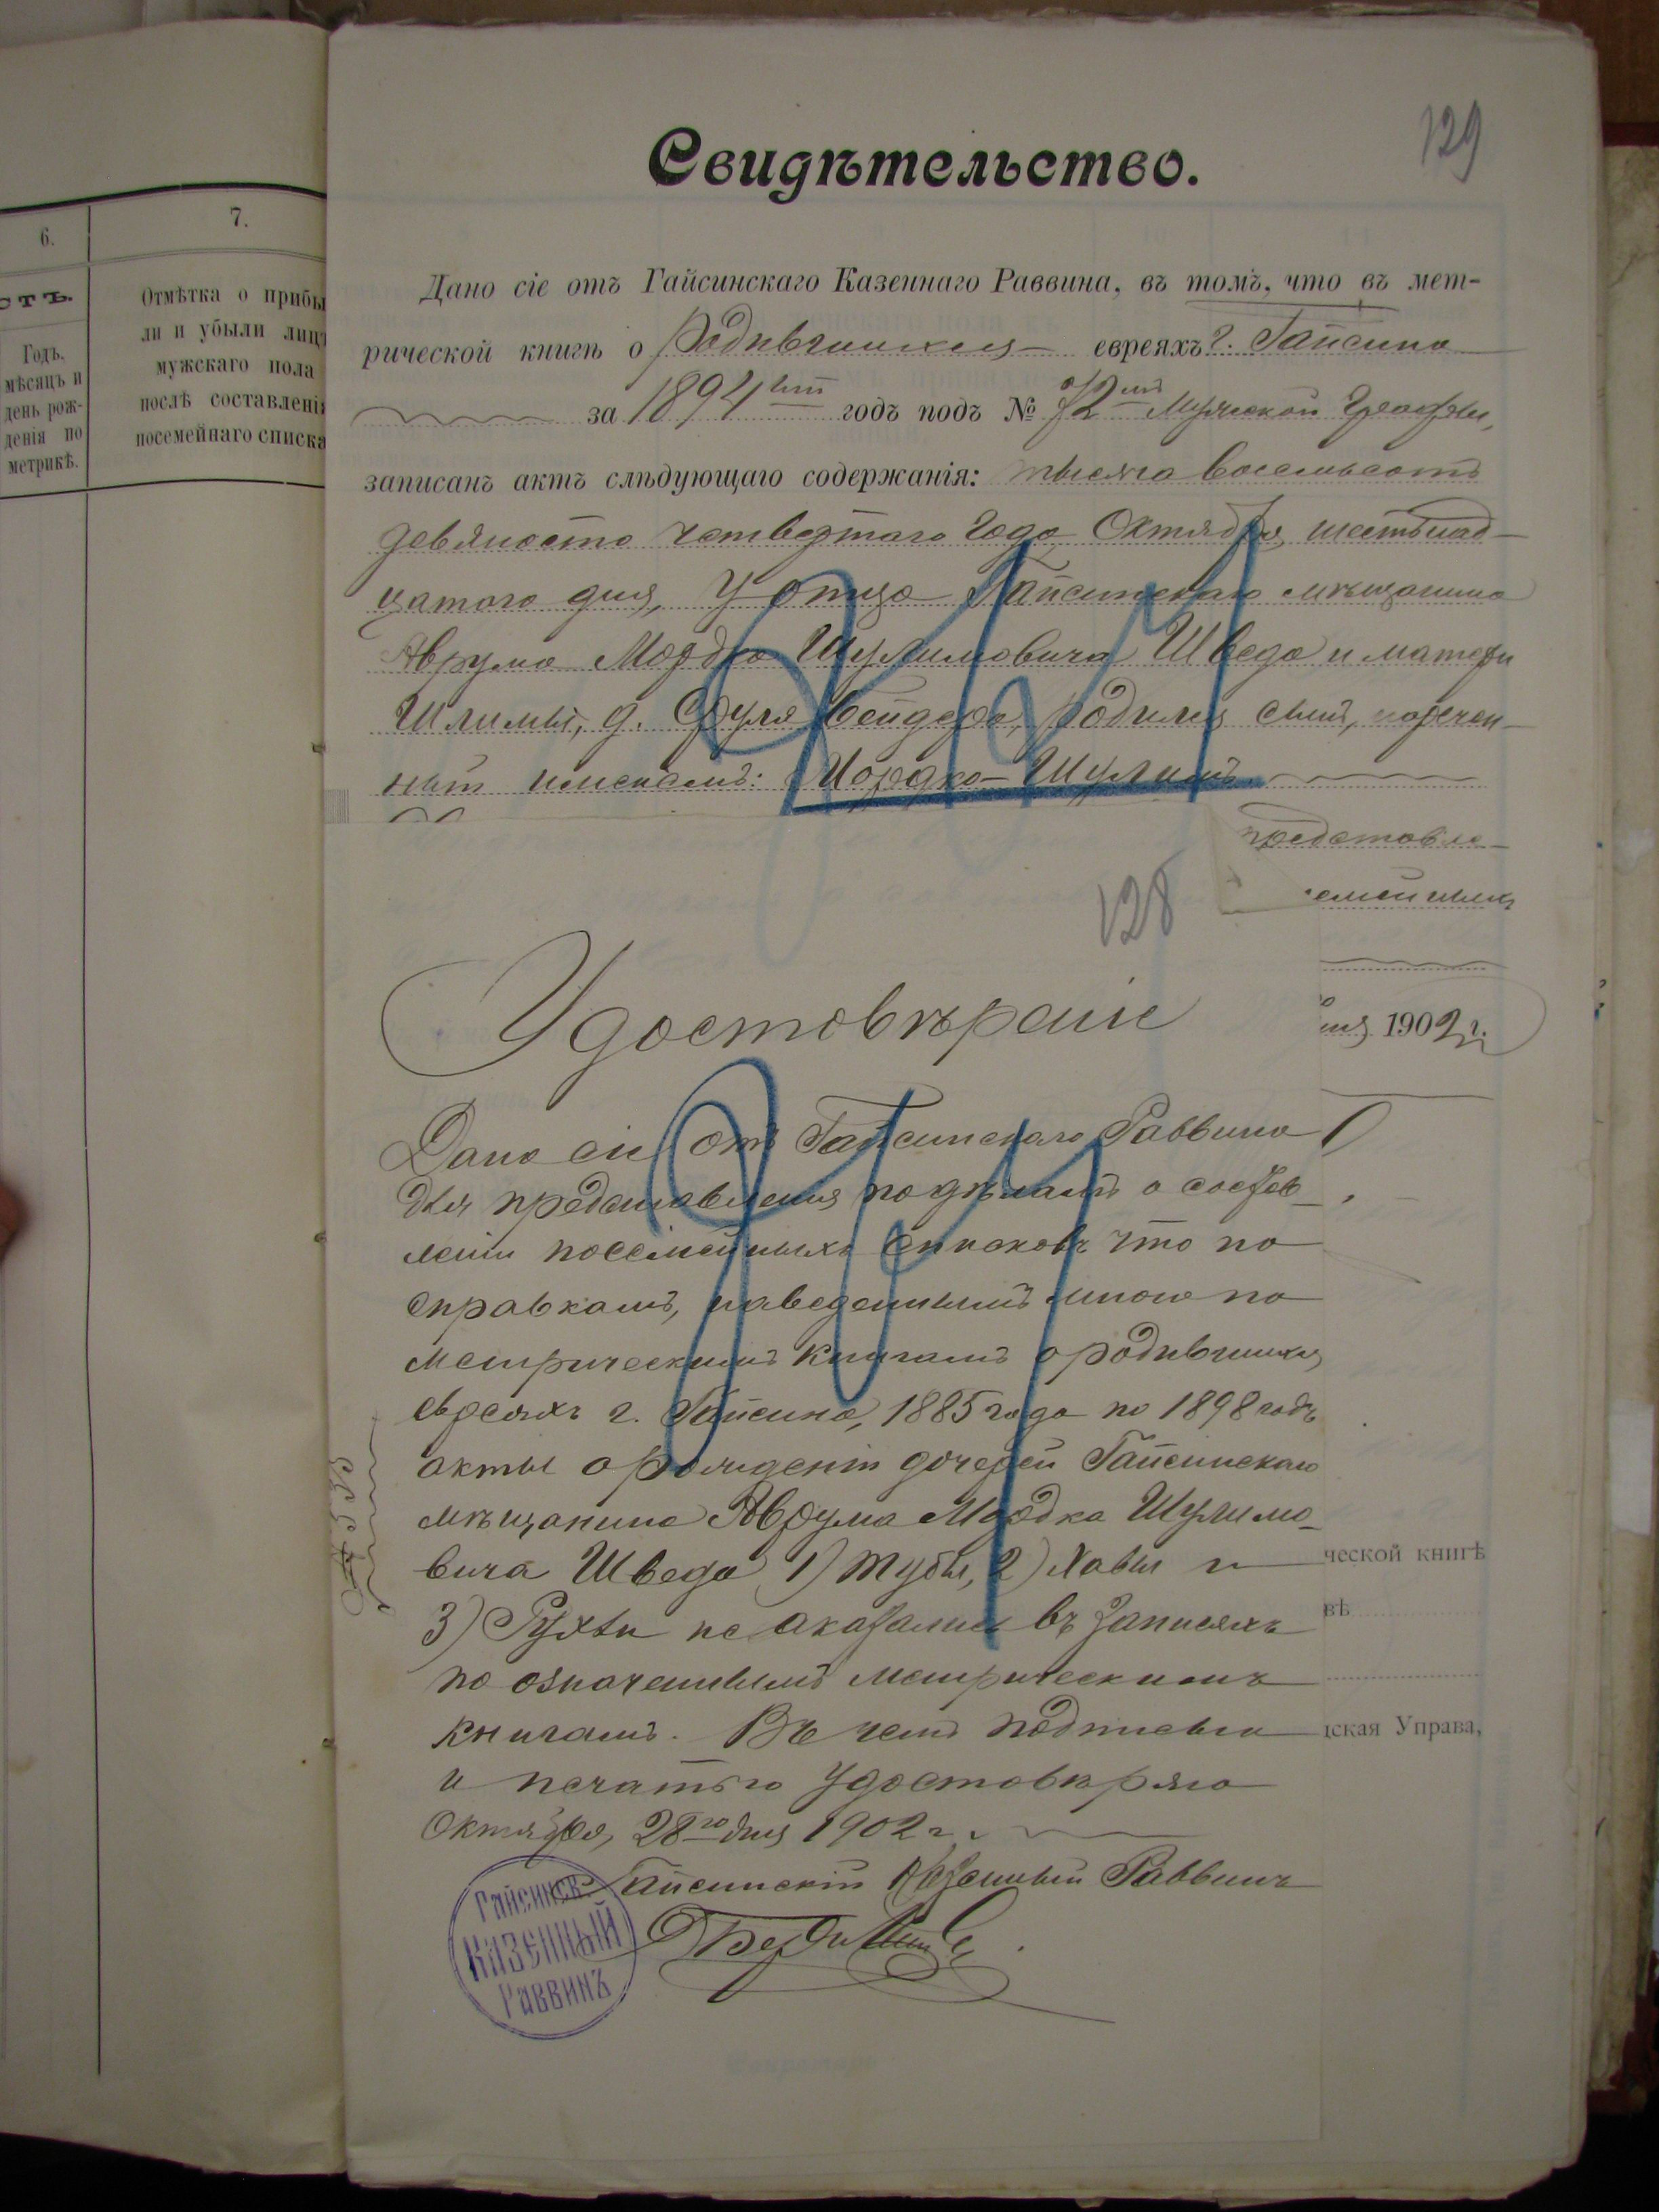 129
Свидѣтельство.
6.
7.
сть.
Годъ,
мѣсяцъ и
день рож-
денія по
метрикѣ.
Отмѣтка о прибы
ли и убыли лицъ
мужскаго пола
послѣ составлені
посемейнаго списка
Дано сіе отъ Гайсинскаго Казеннаго Раввина, въ томъ, что въ мет-
рической книгѣ о родившихся евреяхъ г. Гайсина
за 1894 годъ подъ № 72 мужской графы,
записанъ актъ слѣдующаго содержанія: тысяча восемьсотъ
девяносто четвертаго года Октября шестьнад-
цатого дня, у отца Гайсинскаго мѣщанина
Аврума Мордка Шулимовича Шведа и матери
Шлимы, д. Сруля родился сынъ, наречен-
ный именемъ: Иордко-Шулимъ
представле-
емейныхъ
128
1902 г.
Удостовѣреніе
Дано сіе отъ Гайсинскаго Раввина
для представленія по дѣламъ о состав-
леніи посемейныхъ списковъ что по
справкамъ, наведеннымъ мною по
метрическимъ книгамъ о родившихся
евреяхъ г. Гайсина, 1885 года по 1898 годъ
акты о рожденіи дочерей Гайсинскаго
мѣщанина Аврума Мордка Шулимо-
вича Шведа 1) Тубы, 2) Хавы и
3) Рухли не оказались въ записяхъ
по означеннымъ метрическимъ
книгамъ. Въ чемъ подписью
и печатью удостовѣряю
Октября, 28го дня 1902 г.
Гайсинскій Казенный Раввинъ
Гайсинск.
КАЗЕННЫЙ
Раввинъ
ческой книгѣ
вѣ
ская Управа,